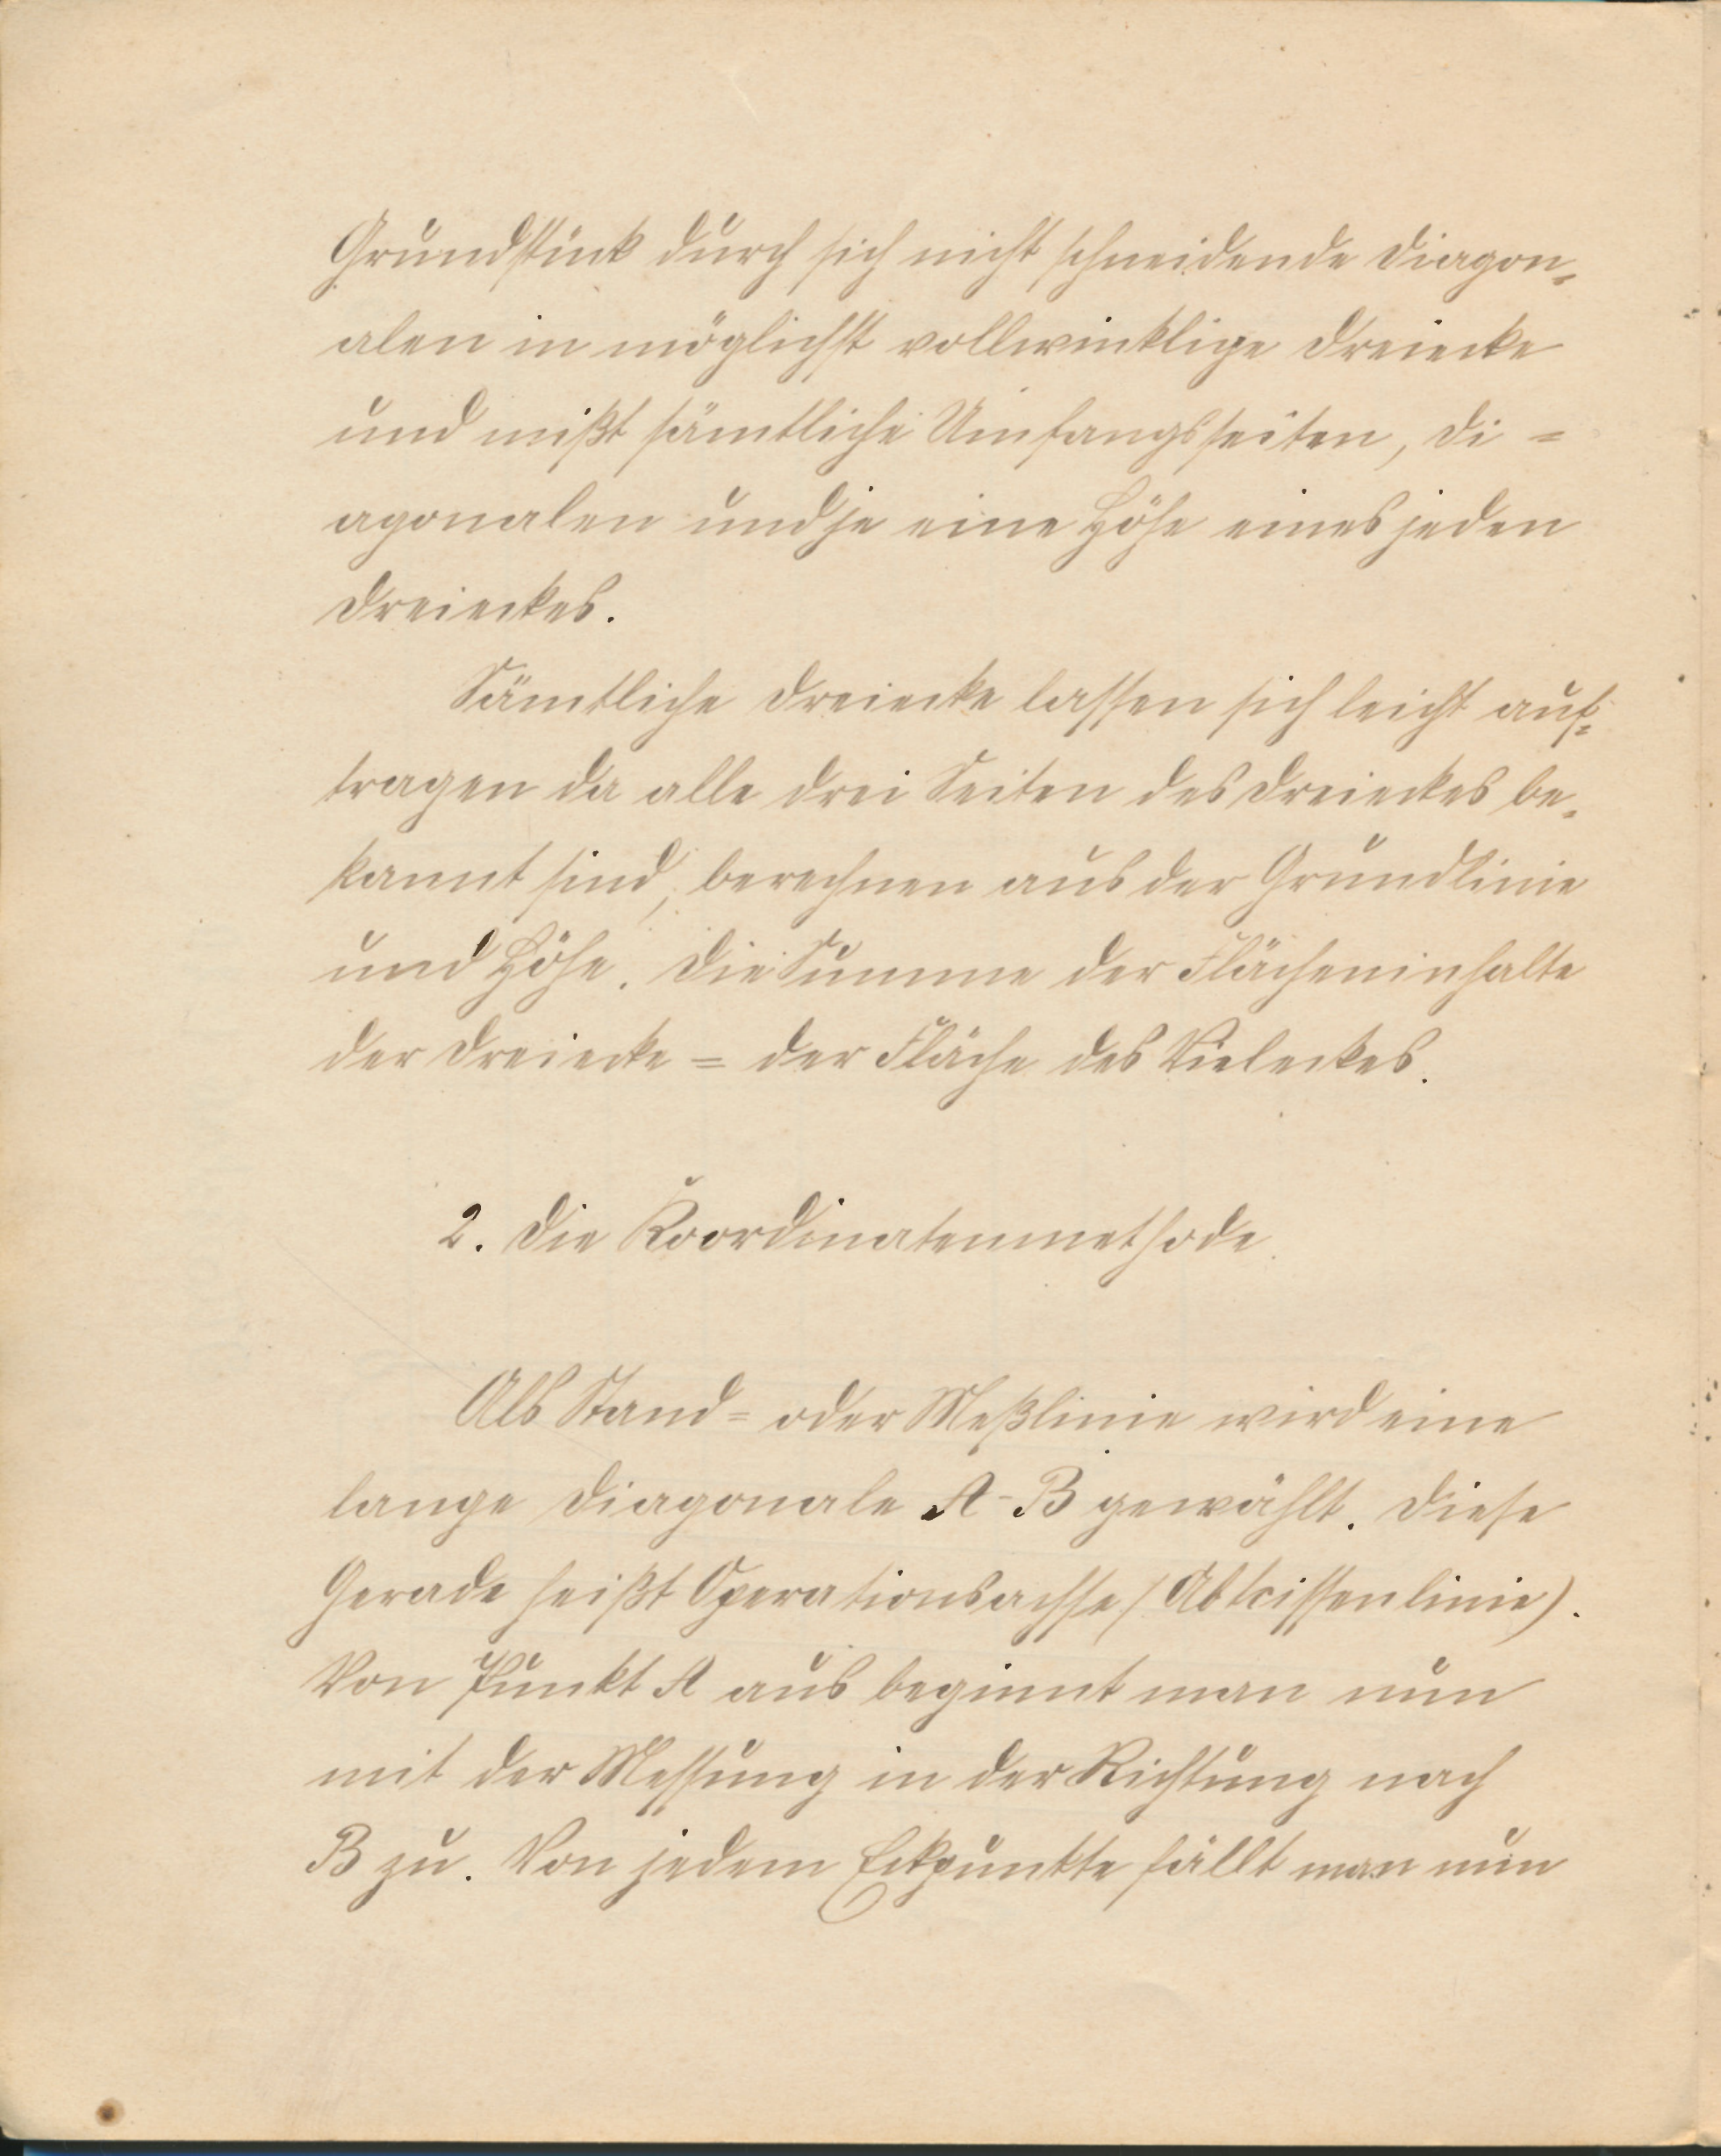 Grundstück durch sich nicht schneidende Diagon-
alen in möglichst vollwinklige Dreiecke
und mißt sämtliche Umfangsseiten, Di =
agonalen und je eine Höhe eines jeden
Dreieckes.
Sämtliche Dreiecke lassen sich leicht auf=
tragen da alle drei Seiten des Dreieckes be=
kannt sind, berechnen aus der Grundlinie
und Höhe. Die Summe der Flächeninhalte
der Dreiecke = der Fläche des Vieleckes.
2. Die Koordinatenmethode.
Als Stand= oder Meßlinie wird eine
lange Diagonale A-B gewählt. Diese
Gerade heißt Operationsachse (Abscissenlinie).
Von Punkt A aus beginnt man nun
mit der Messung in der Richtung nach
B zu. Von jedem Eckpunkte fällt man nun